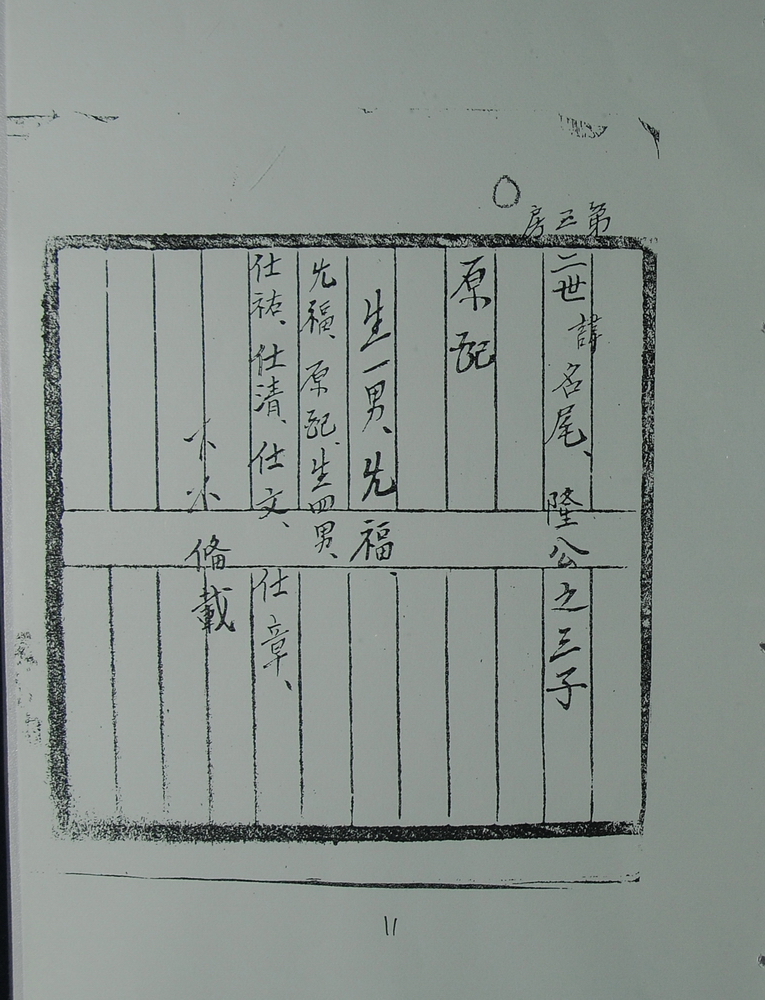 第三房
二世 諱名尾、隆公之三子
原配
生一男、先福、
先福、原配、生四男、
仕祐、仕清、仕文、仕章、
不备載
11